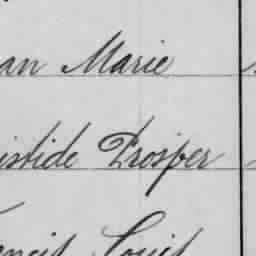 an Marie
istide Prosper
ancis Louis